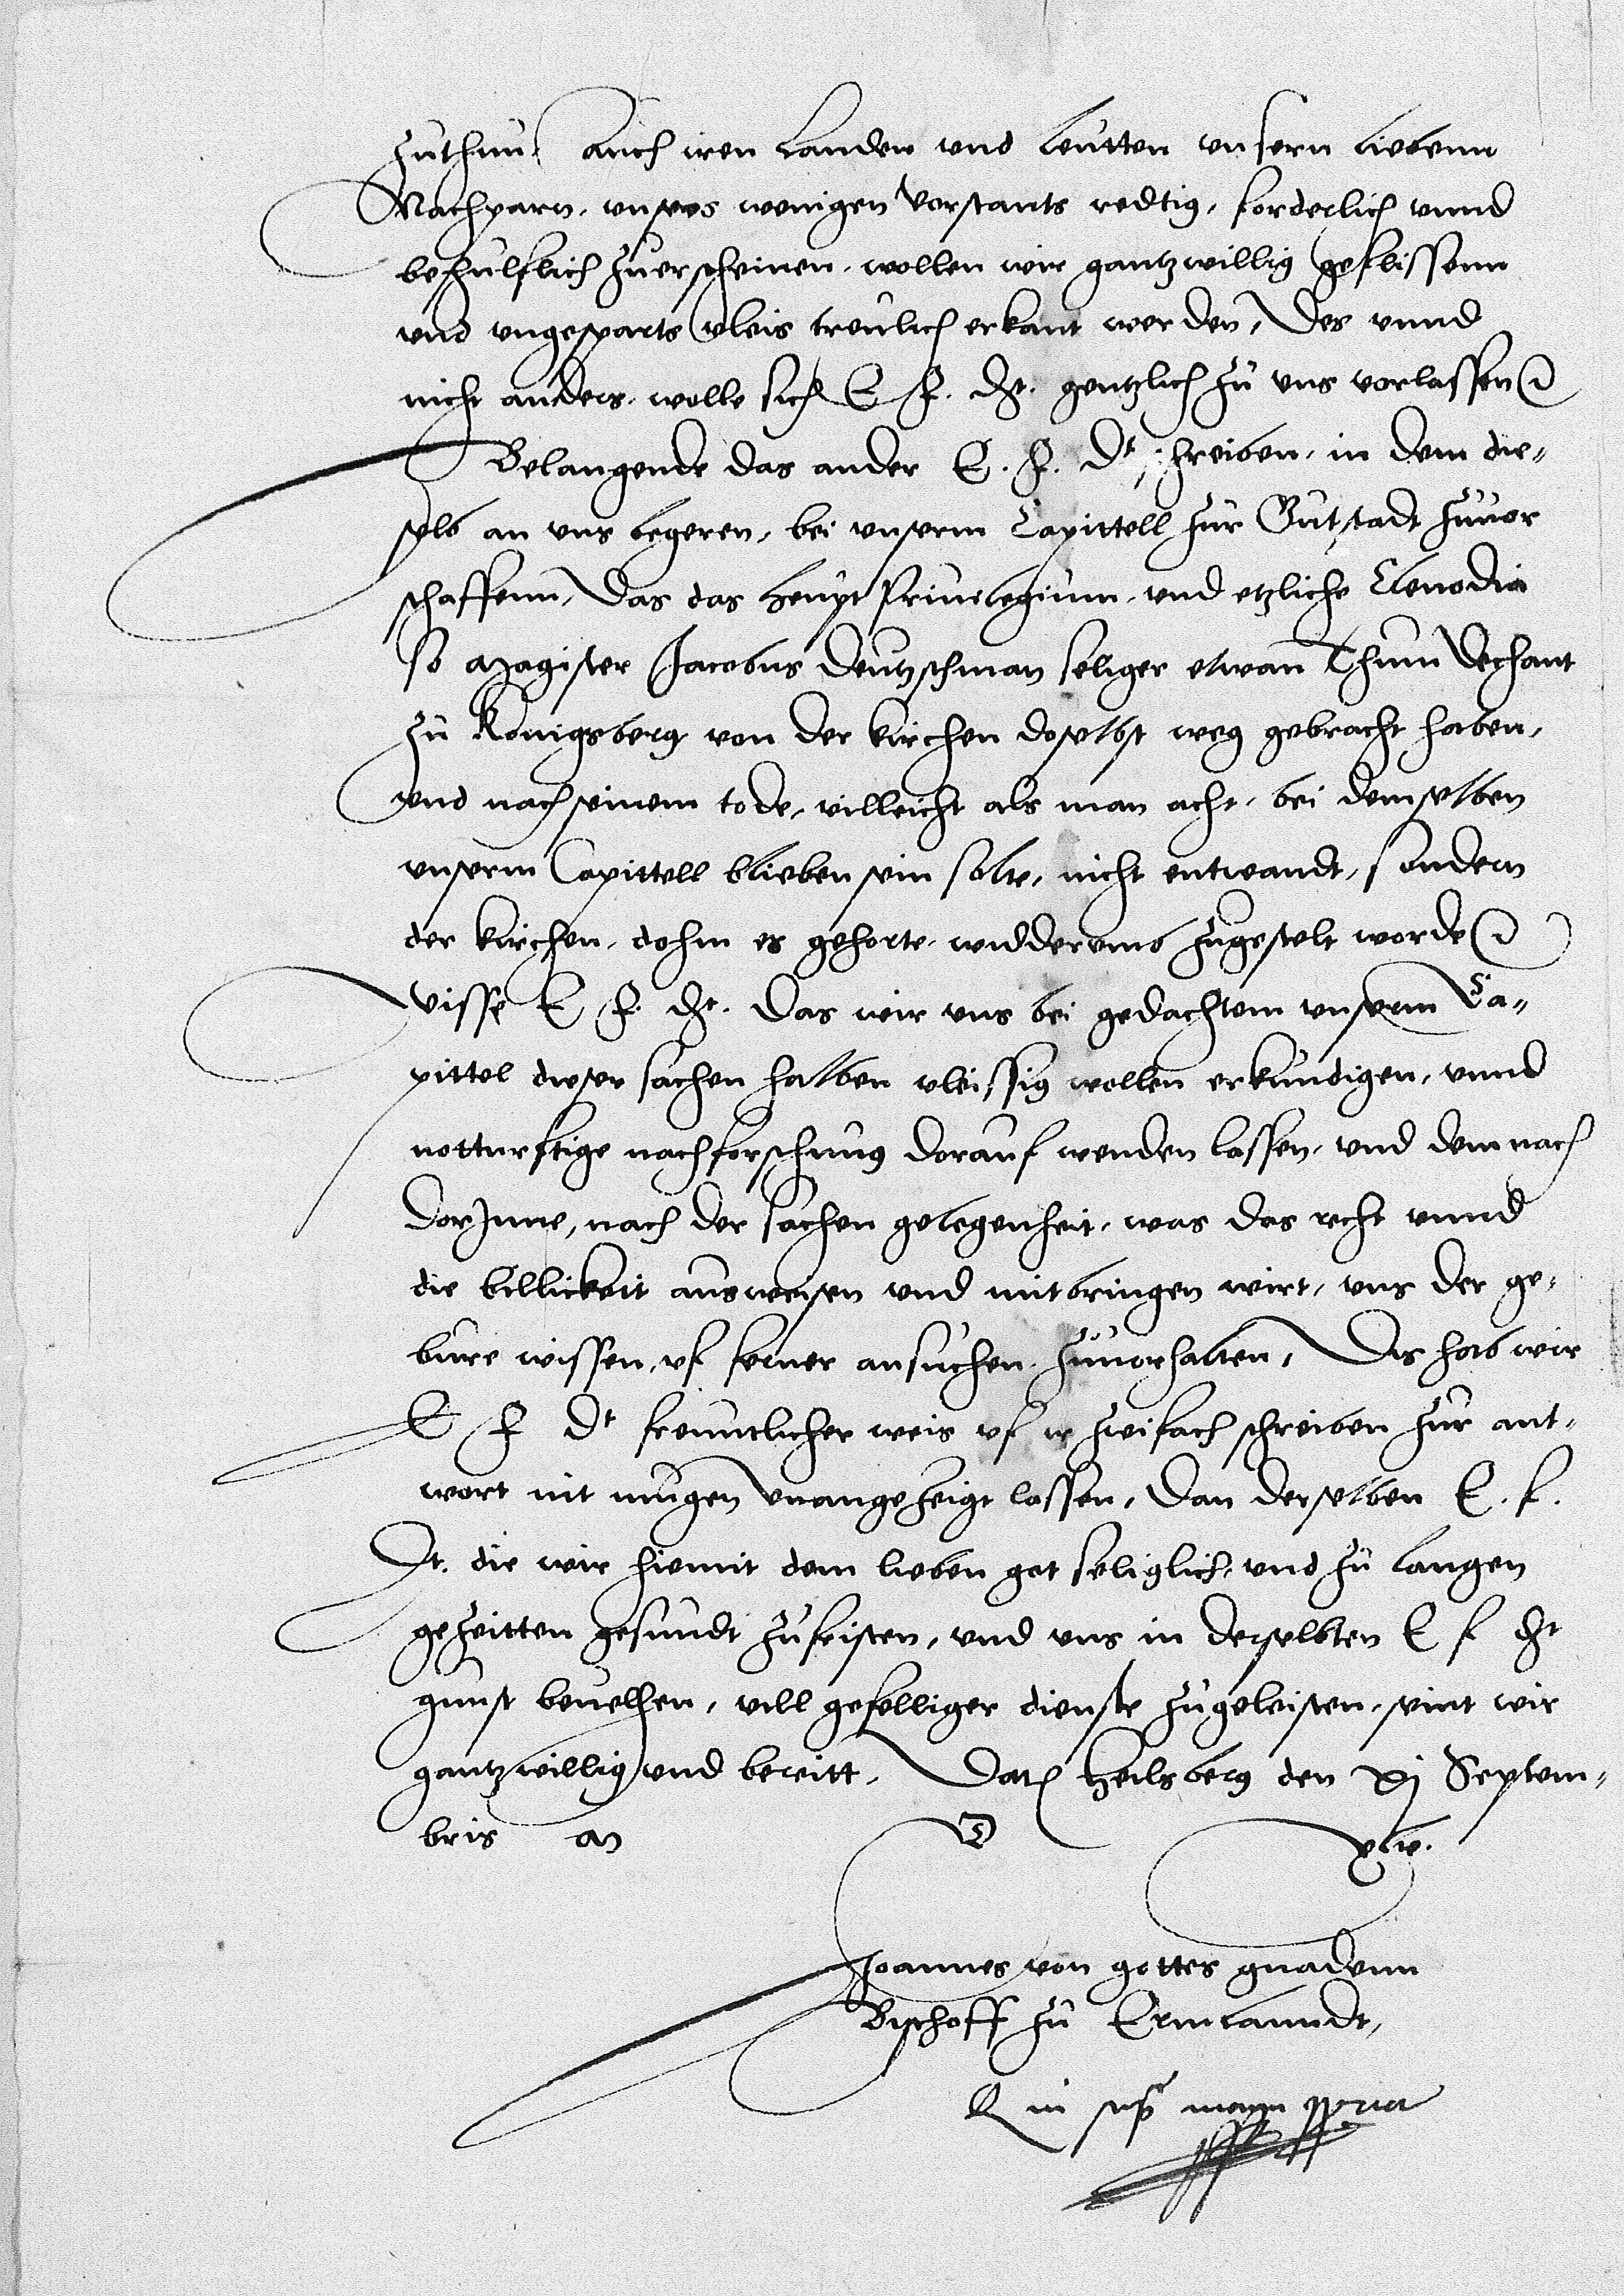 zuthun, auch iren Landen und leutten unsern liebenn
Nachparn, unsers wenigen vorstants redtig, forderlich unnd
behulflich zuerscheinen, wollen wir gantz willig geflissenn
und ungesparts vleis treulich erkant werden, Des unnd
nicht anders, wolle sich E F. Dt. gentzlich zu uns vorlassen
Belangende das ander E. F. Dt schreiben, in dem die-
selb an uns begeren, bei unserm Capittell zur Gutstadt zuvor
schaffenn, Das das heupt Privilegium, und etzliche Clenodia
so Magister Jacobus Deutzschman seliger etwan Thum Dechant
zu Konigsberg von der kirchen doselbst weg gebracht haben,
und nach seinem tode, villeicht als man acht, bei demselben
unserm Capittell blieben sein solte, nicht entwandt, sondern
der kirchen, dohin es gehorte, widderumb zugestelt worde
Wisse E F. Dt. Das wir uns bei gedachtem unserm Ca-
pittel dieser sachen halben vleissig wollen erkundigen, unnd
notturftige nachforschung dorauf wenden lassen, und demnach
dorInne, nach der sachen gelegenheit, was das recht unnd
die billickeit ausweisen und mitbringen wirt, uns der ge-
bure wissen, uf ferner ansuchen, zuuorhalten, Des hab wir
E F Dt freuntlicher weis uf ir zwifach schreiben zur ant-
wort nit mugen unangezeigt lassen, Dan derselben E. f.
Dt. die wir hiemit dem lieben got seliglich, und zu langen
gezeitten gesundt zufristen, und uns in derselbten E f Dt
gunst bevelhen, vill gefelliger dienste zugeleisten, seint wir
gantz willig und bereitt, Dat Heilsberg den xj Septem-
bris M D xlv.
Joannes von gottes gnadenn
Bischoff zu Ermlanndt,
manu ppria